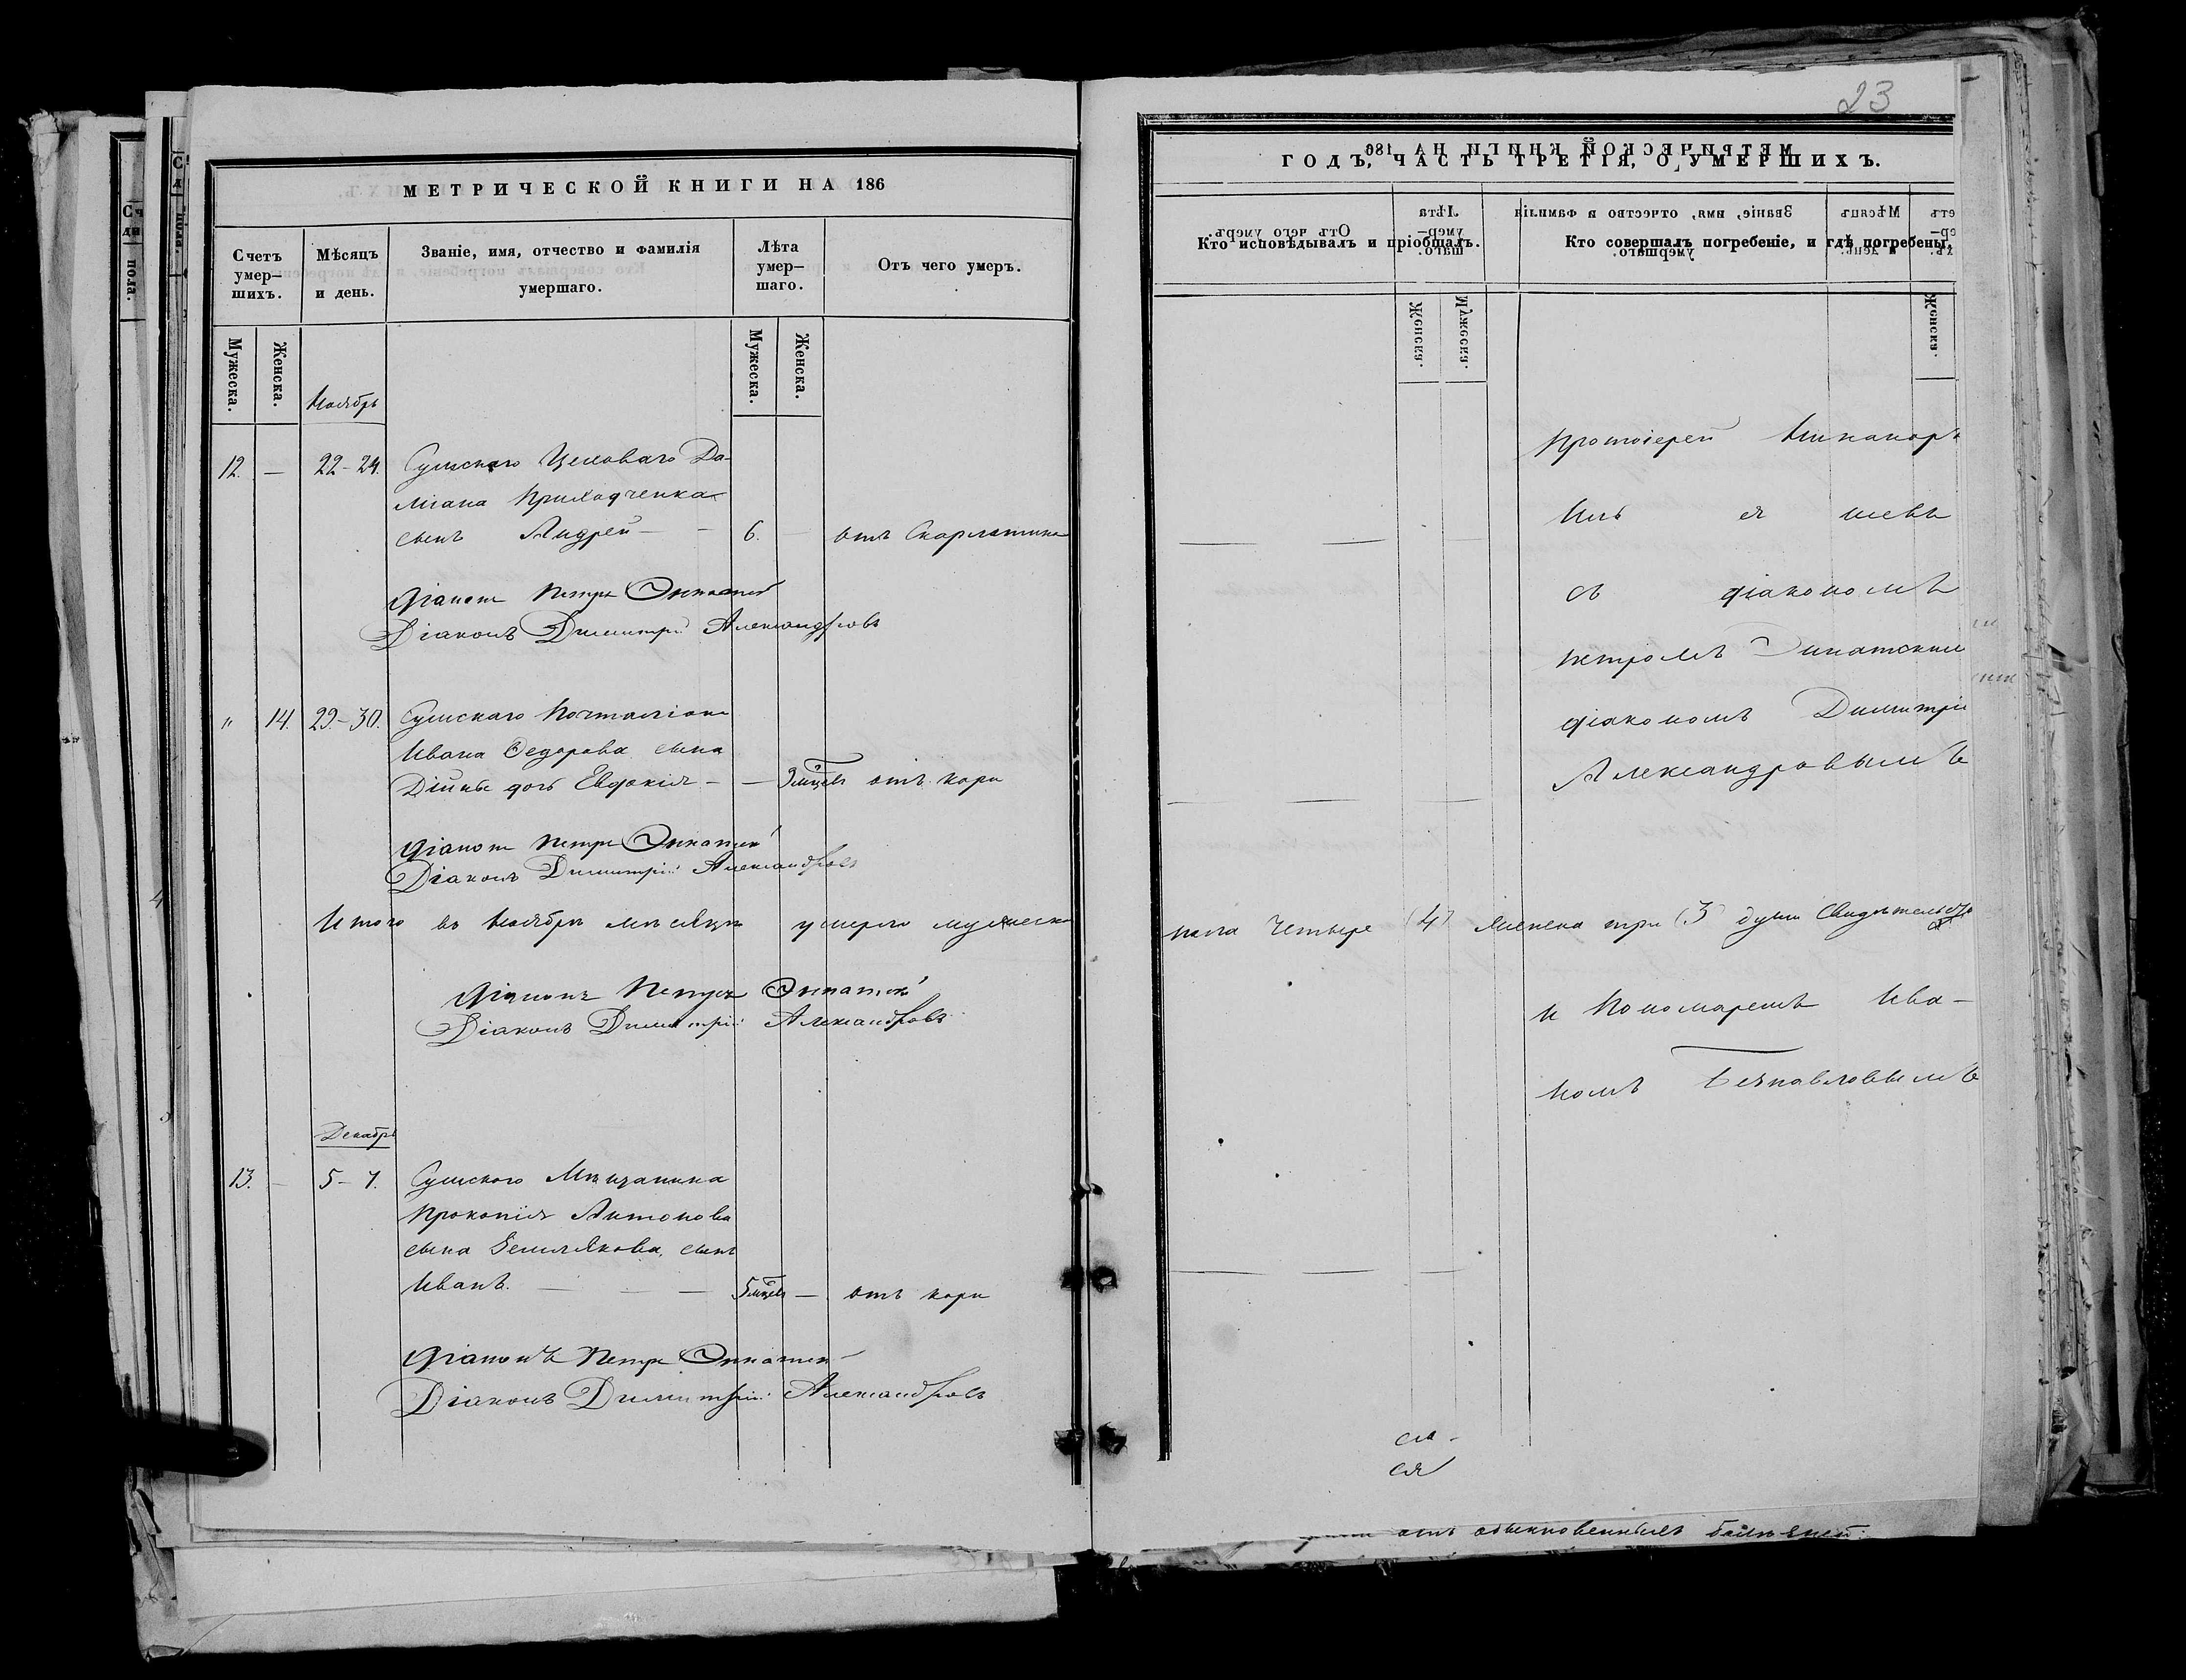 23
МЕТРИЧЕСКОЙ КНИГИ НА 186
Счетъ умер-шихъ.
Мѣсяцъ и день.
Званіе, имя, отчество и фамилія умершаго.
Лѣта умер-шаго.
Отъ чего умеръ.
Мужеска.
Женска.
Мужеска.
Женска.
Ноябрь
12. — 22-24. Сумскаго Цеховаго Да-
міана Приходченка
сынъ Андрей — — 6. — отъ Скарлатины
Діаконъ Петръ
Діаконъ Димитрій Александровъ
" 14. 29-30. Сумскаго Почталіона
Ивана Федорова сына
дочь Евдокія — — 3 мцвъ отъ кори
Діаконъ Петръ
Діаконъ Димитрій Александровъ
Итого въ Ноябрѣ мѣсяцѣ умерло мужеска
Діаконъ Петръ
Діаконъ Димитрій Александровъ
Декабрь
13. — 5-7. Сумского Мѣщанина
Прокопія Антонова
сына Землякова, сынъ
Иванъ. — — — 5 мцвъ — отъ кори
Діаконъ Петръ
Діаконъ Димитрій Александровъ
ГОДЪ, ЧАСТЬ ТРЕТІЯ, О УМЕРШИХЪ.
Кто исповѣдывалъ и пріобщалъ.
Кто совершалъ погребеніе, и гдѣ погребены.
Протоіерей Никаноръ
съ діакономъ
Петромъ
діакономъ Димитрі
Александровымъ
пола Четыре (4) Женска три (3) души
и Пономаремъ Ива-
номъ
ся
отъ обыкновенныхъ болѣзней